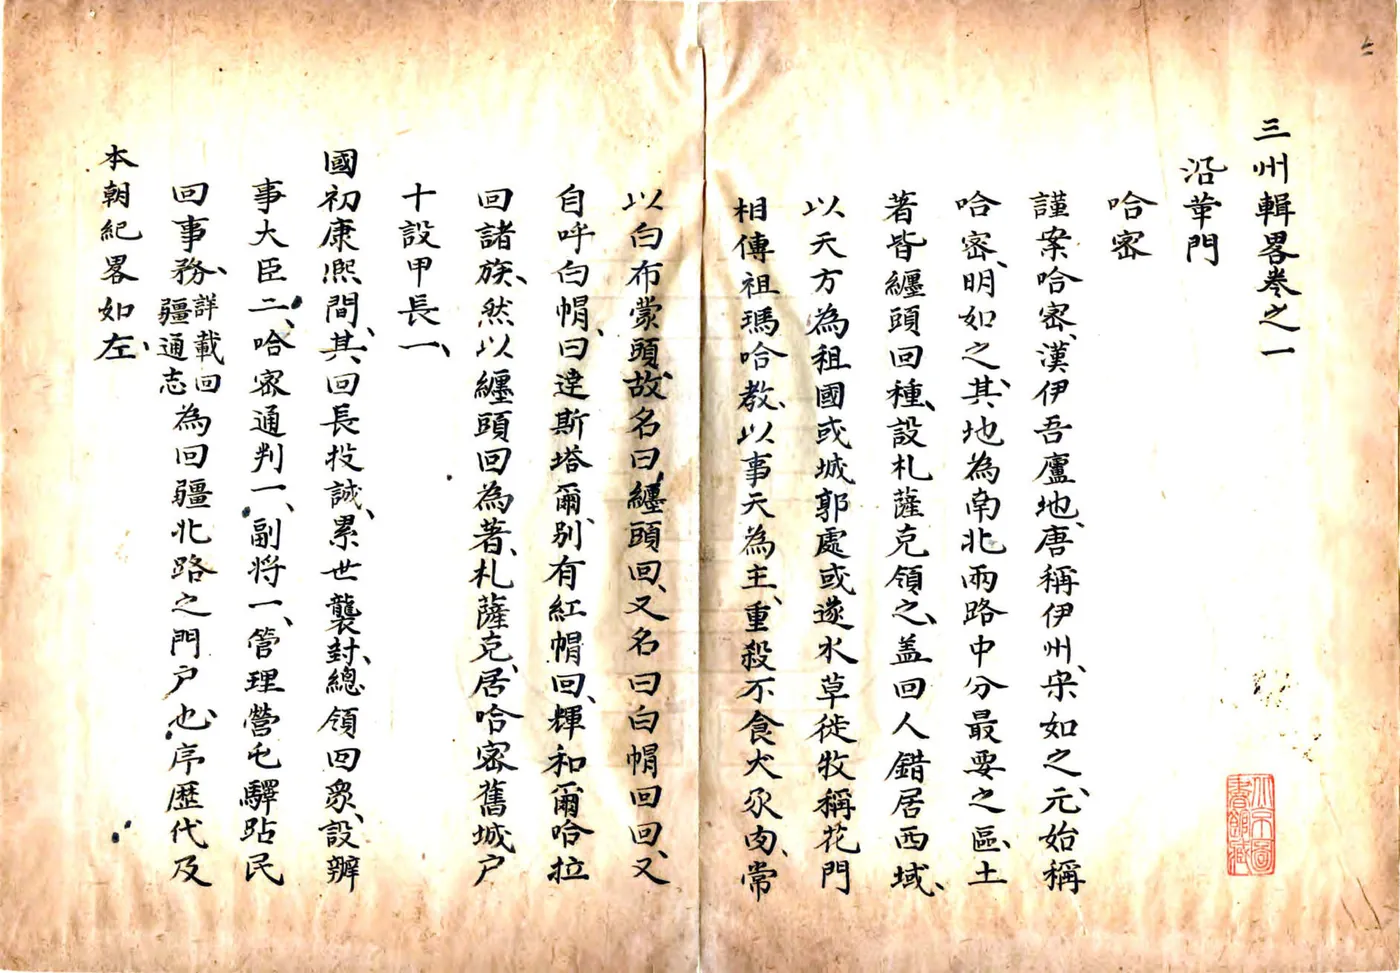 三州輯畧卷之一
沿革門
哈密
謹案哈密、漢伊吾廬地、唐稱伊州、宋如之、元始稱
哈密、明如之、其地為南北兩路中分最要之區、土
著皆纏頭回種、設札薩克領之、盖回人錯居西域、
以天方為祖國或城郭處或遂水草徙牧稱花門
相傳祖瑪哈教、以事天為主、重殺不食犬豕肉、常
以白布蒙頭、故名曰纏頭回、又名曰白帽回回、又
自呼白帽、曰達斯塔爾、别有紅帽回、輝和爾哈拉
回諸族、然以纏頭回為著、札薩克、居哈密舊城、户
十設甲長一、
國初康熙間、其回長投誠、累世襲封、總領回衆、設辦
事大臣二、哈密通判一、副将一、管理營屯驛跕民
回事務、詳載回疆通志為回疆北路之門户也、序歷代及
本朝紀畧如左、
北京圖書館藏